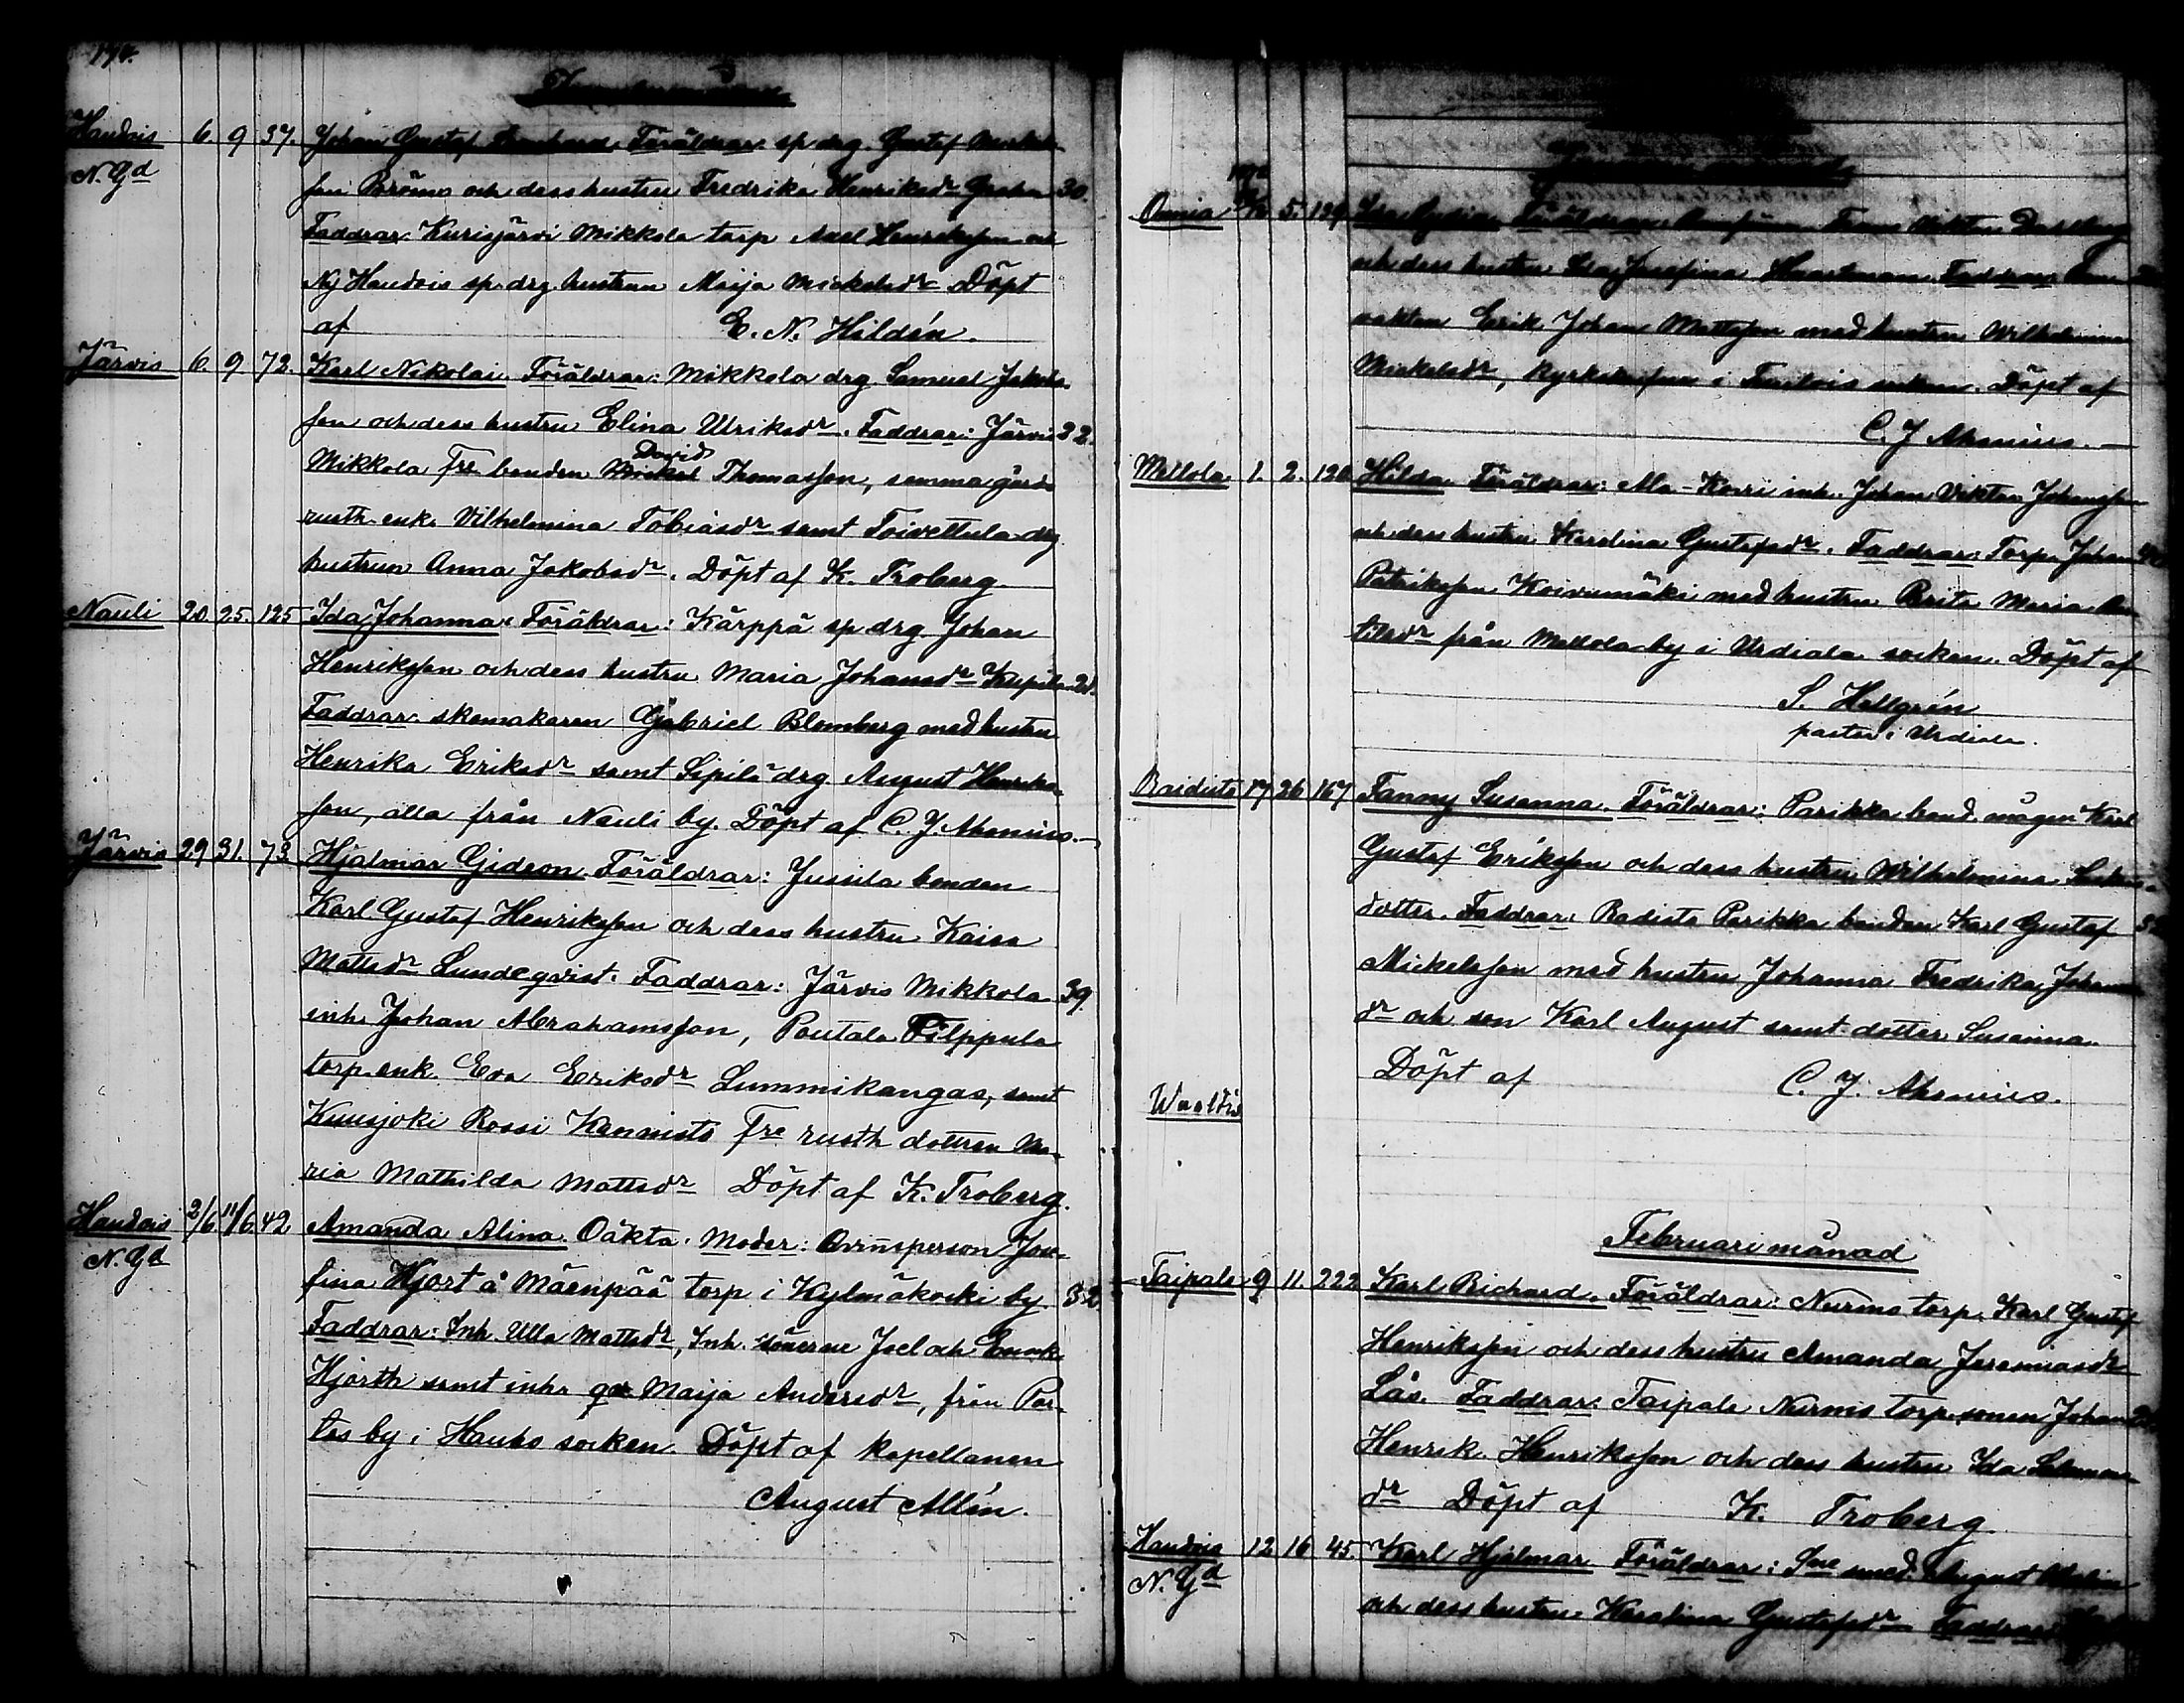 Haudois 6. 9 37. Johan Gustaf Föräldrar: sp drg. Gustaf
N. Gd son och dess hustru Fredrika Henriksdr 30.
Faddrar: Kurisjärvi Mikkola torp Axel Henriksson och
Nyj Haudois sp. drg. hustrun Maija Mickelsdr Döpt
af E. N. Hildén.
Järvis 6. 9 72. Karl Nikolai. Föräldrar: Mikkola drg Samuel Jakobs-
son och dess hustru Elina Ulriksdr. Faddrar: Järvis 32.
David
Mikkola Fre bonden Thomasson, samma gårds
rusth. enk. Vilhelmina Tobiasdr samt Toivettula drg
hustrun Anna Jakobsdr. Döpt af K. Troberg
Nauli 20 25. 125 Ida Johanna. Föräldrar: Kärppä sp drg. Johan
Henriksson och dess hustru Maria Johansdr
Faddrar: skomakaren Gabriel Blomberg med hustru
Henrika Eriksdr samt Sipilä drg August Henriks-
son, alla från Nauli by. Döpt af C. J. Ahonius.
Järvis 29 31. 73 Hjalmar Gideon. Föräldrar: Jussila bonden
Karl Gustaf Henriksson och dess hustru Kaisa
Mattsdr Sundeqvist. Faddrar: Järvis Mikkola 39.
inh. Johan Abrahamsson, Poutala Filppula
torp. enk. Eva Eriksdr Lummikangas, samt
Kuusjoki Rossi Kannisto Fre rusth dottren Ma-
ria Mathilda Mattsdr Döpt af K. Troberg.
Haudois 2/6 11/6 42 Amanda Alina. Oäkta. Moder: Qvinsperson Jose-
N. Gd fina Hjort å Mäenpää torp i Kylmäkoski by. 32
Faddrar: Inh. Ulla Mattsdr, Inh. sönerne Joel och Enok
Hjorth samt inh. Maija Andersdr, från Por-
tas by i Hauho socken. Döpt af kapellanen
August Allén.
5. Ida Lydia Föräldrar: Frans Viktor Dahlberg
och dess hustru Ida Josefina Haartman. Faddrar:
vakten Erik Johan Mattsson med hustru Wilhelmina
Mickelsdr, i socken. Döpt af
C. J Ahonius.
Mellola 1. 2. 120 Hilda Föräldrar: Ala-Kouri inh. Johan Viktor Johansson
och dess hustru Karolina Gustafsdr. Faddrar: Torp. Johan 40
Patriksson Koivumäki med hustru Brita Maria
från Mellola by i Urdiala socken. Döpt af
S. Hellgrén
pastor i Urdiala.
Raidisto 17 26 167 Fanny Susanna. Föräldrar: Parikka bond. mågen Karl
Gustaf Eriksson och dess hustru Wilhelmina
dotter. Faddrar: Radisto Parikka bonden Karl Gustaf
Mickelsson med hustru Johanna Fredrika Johans-
dr och son Karl August samt dotter Susanna.
Döpt af C. J. Ahonius.
Waaltis
Februari månad
Taipale 9 11. 222 Karl Richard. Föräldrar: Nurmo torp. Karl Gustaf
Henriksson och dess hustru Amanda Jeremiasdr
Lås. Faddrar: Taipale Nurmis torp. sonen Johan
Henrik Henriksson och dess hustru Ida Salomons-
dr Döpt af K. Troberg
Haudois 12 16 45. Karl Hjalmar Föräldrar: smed. August
N. Gd och dess hustru Karolina Gustafsdr Faddrar: